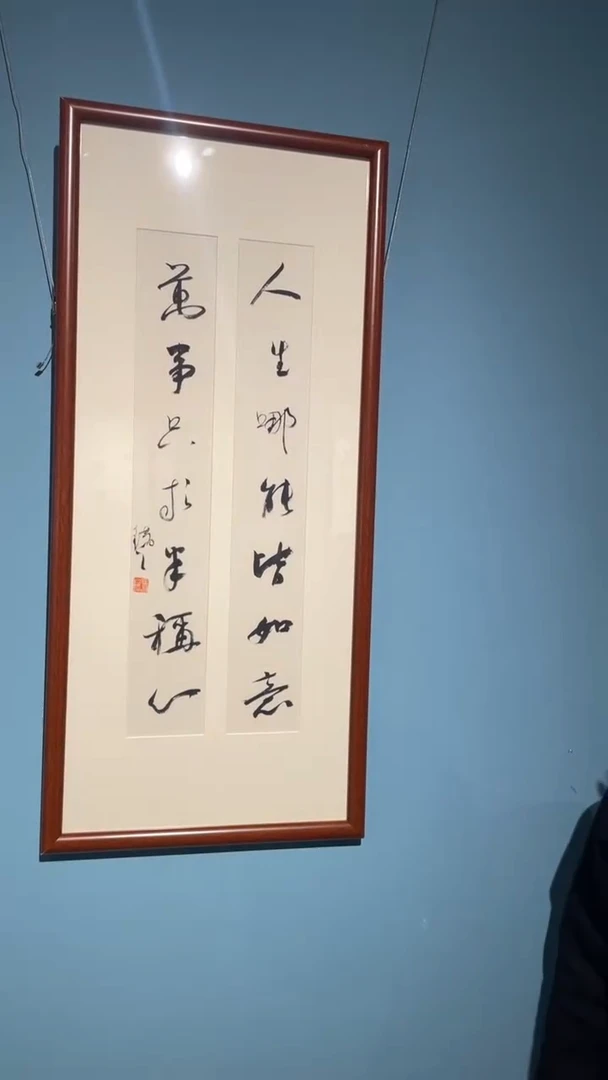 人生哪能皆如意
萬事只求半稱心